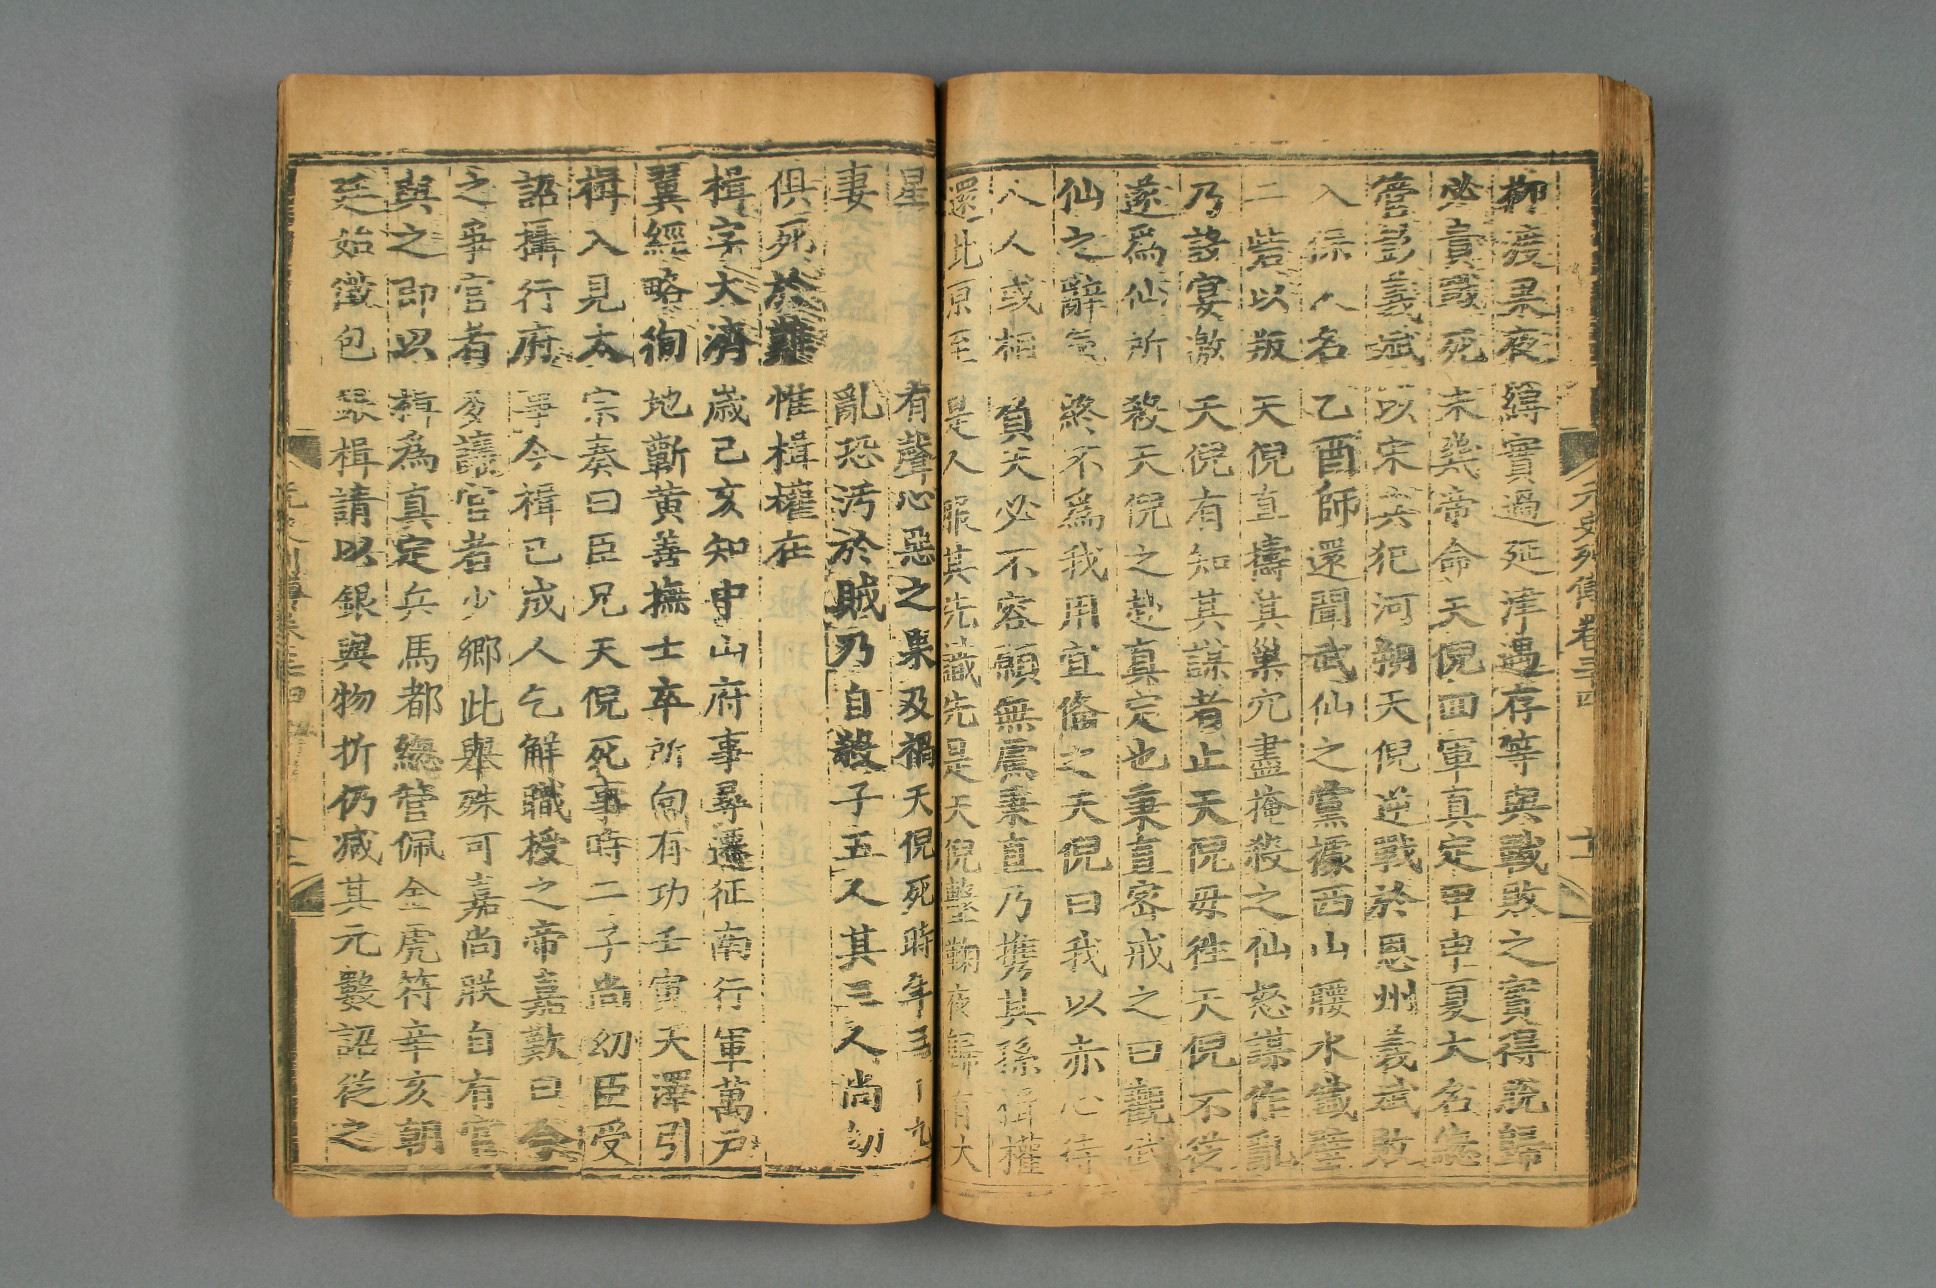 柳渡果夜縛實過延津遇存等與戰敗之實得脫歸
皆責戰死未幾帝命天倪回軍真定甲申夏大名總
管彭義斌以宋兵犯河朔天倪逆戰於恩州義斌敗
入保大名乙酉師還聞武仙之黨據西山腰水鐵壁
二砦以叛天倪直擣其巢穴盡掩殺之仙怒謀作亂
乃設宴邀天倪有知其謀者止天倪毋往天倪不從
遂爲仙所殺天倪之赴真定也秉直密戒之曰觀武
仙之辭氣終不爲我用宜備之天倪曰我以赤心待
人人或相負天必不容願無慮秉直乃携其孫楫權
還北京至是人服其先識先是天倪擊鞠夜歸有大
星 有聲心惡之果及禍天倪死時年三十九
妻 亂恐汚於賊乃自殺子五人其三人尚幼
俱死於難惟楫權在
楫字大濟歲己亥知中山府事尋遷征南行軍萬戶
翼經略徇地蘄黃善撫士卒所向有功壬寅天澤引
楫入見太宗奏曰臣兄天倪死事時二子尚幼臣受
詔攝行府事今楫已成人乞解職授之帝嘉歎曰今
之爭官者多讓官者少卿此舉殊可嘉尚朕自有官
與之即以楫爲真定兵馬都總管佩金虎符辛亥朝
廷始徵包銀楫請以銀與物折仍减其元數詔從之
元史列傳卷三十四
十一